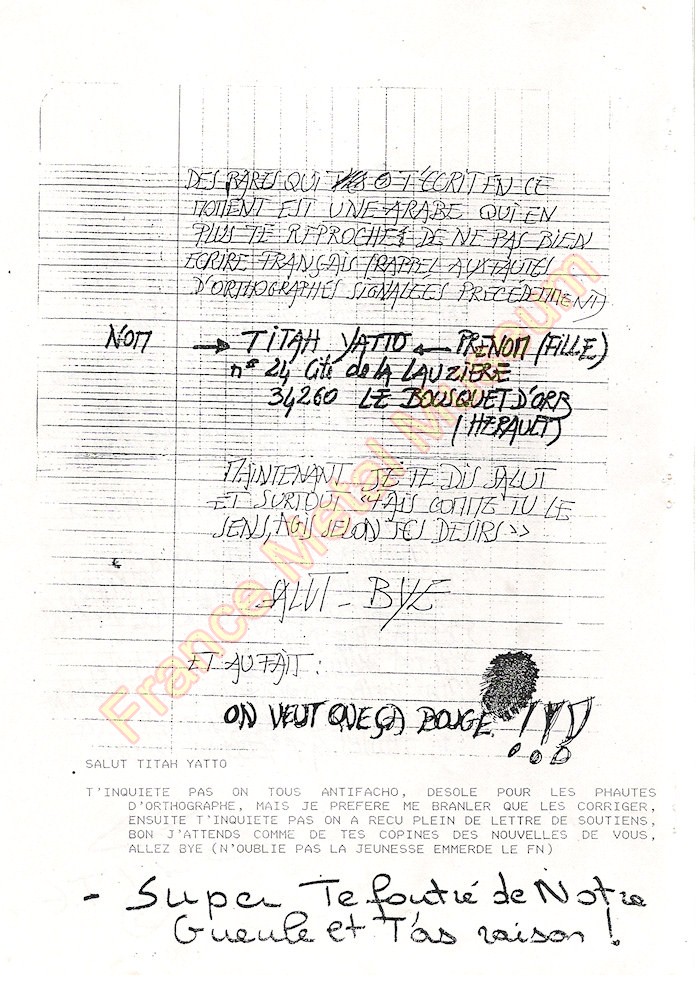 DES RARES QUI T'ECRIT EN CE
MOMENT EST UNE ARABE QUI EN
PLUS TE REPROCHE DE NE PAS BIEN
ECRIRE FRANÇAIS (RAPPEL AUX FAUTES
D'ORTHOGRAPHES SIGNALEES PRECEDEMMENT)
NOM → TITAH YATTO ← PRENOM (FILLE)
n° 24 Cité de la LAUZIERE
34260 LE BOUSQUET D'ORB
(HERAULT)
MAINTENANT JE TE DIS SALUT
ET SURTOUT "FAIS COMME TU LE
SENS, AGIS SELON TES DESIRS >>
SALUT - BYE
ET AU FAIT :
ON VEUT QUE ÇA BOUGE !!!
SALUT TITAH YATTO
T'INQUIETE PAS ON TOUS ANTIFACHO, DESOLE POUR LES PHAUTES
D'ORTHOGRAPHE, MAIS JE PREFERE ME BRANLER QUE LES CORRIGER,
ENSUITE T'INQUIETE PAS ON A RECU PLEIN DE LETTRE DE SOUTIENS,
BON J'ATTENDS COMME DE TES COPINES DES NOUVELLES DE VOUS,
ALLEZ BYE (N'OUBLIE PAS LA JEUNESSE EMMERDE LE FN)
- Super Te foutre de Notre
Gueule et T'as raison !
France Metal Museum